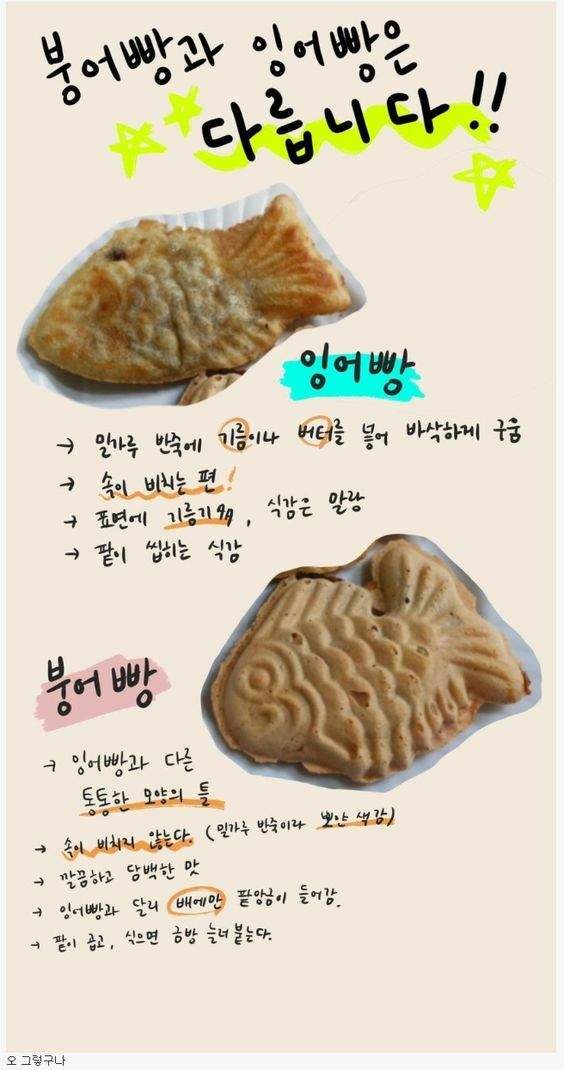 붕어빵과 잉어빵은
다릅니다!!
잉어빵
→ 밀가루 반죽에 기름이나 버터를 넣어 바삭하게 구움
→ 속이 비치는 편!
→ 표면에 기름기有, 식감은 말랑
→ 팥이 씹히는 식감
붕어빵
→ 잉어빵과 다른
통통한 모양의 틀
→ 속이 비치지 않는다. (밀가루 반죽이라 뽀얀 색감)
→ 깔끔하고 담백한 맛
→ 잉어빵과 달리 배에만 팥앙금이 들어감.
→ 팥이 곱고, 식으면 금방 눌러붙는다.
오 그렇구나